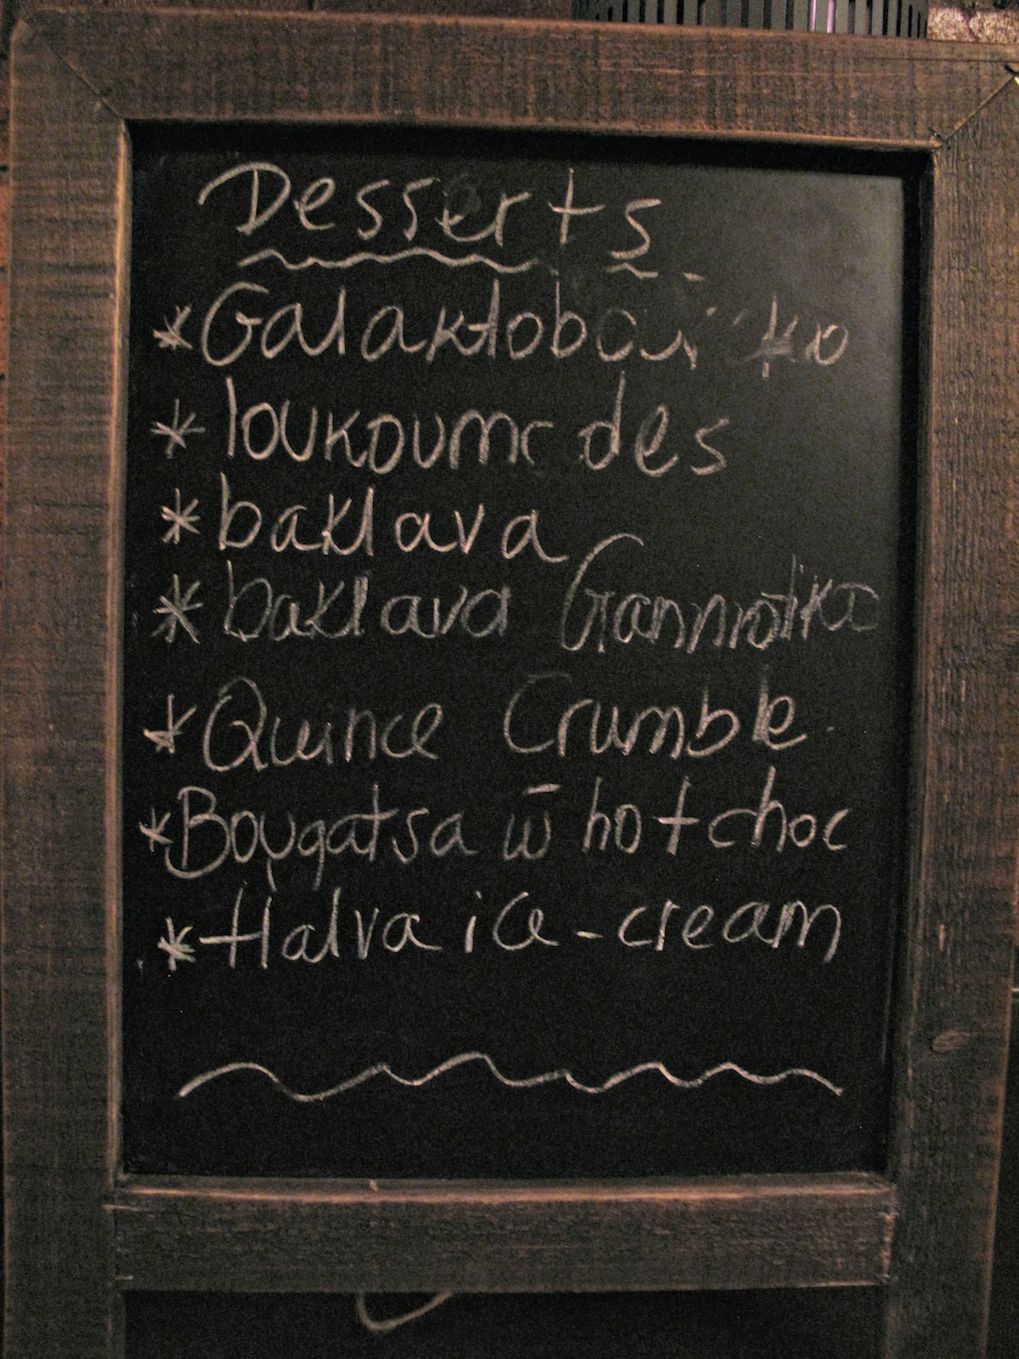 Desserts
* Galaktobou ko
* loukoumades
* baklava
* baklava Giannotiko
* Quince Crumble.
* Bougatsa w̄ hot choc
* Halva ice-cream